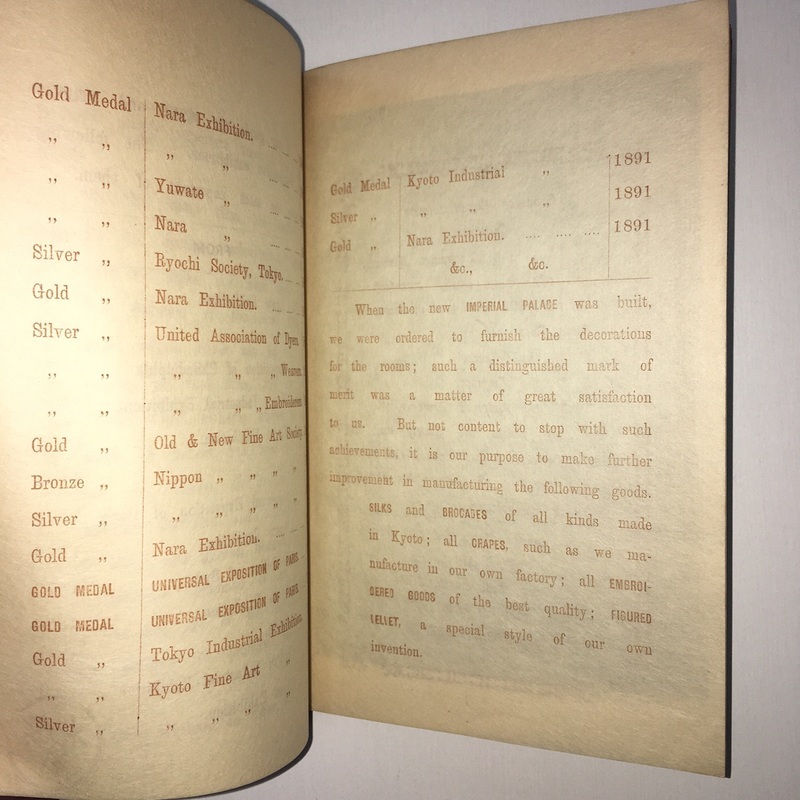 Gold Medal Nara Exhibition. .... ....
„ „ „ „ .... ....
„ „ Yuwate „ .... ....
„ „ Nara „ .... ....
Silver „ Ryochi Society, Tokyo. ....
Gold „ Nara Exhibition. .... ....
Silver „ United Association of Dyers
„ „ „ „ „ Weavers
„ „ „ „ „ Embroiderers
Gold „ Old & New Fine Art Society
Bronze „ Nippon „ „ „ „
Silver „ „ „ „ „ „
Gold „ Nara Exhibition. .... ....
GOLD MEDAL UNIVERSAL EXPOSITION OF PARIS.
GOLD MEDAL UNIVERSAL EXPOSITION OF PARIS.
Gold „ Tokyo Industrial Exhibition.
„ „ Kyoto Fine Art „
Silver „ „ „ „ „
Gold Medal Kyoto Industrial „ 1891
Silver „ „ „ „ 1891
Gold „ Nara Exhibition. .... .... .... 1891
&c., &c.
When the new IMPERIAL PALACE was built,
we were ordered to furnish the decorations
for the rooms; such a distinguished mark of
merit was a matter of great satisfaction
to us. But not content to stop with such
achievements, it is our purpose to make further
improvement in manufacturing the following goods.
SILKS and BROCADES of all kinds made
in Kyoto; all CRAPES, such as we ma-
nufacture in our own factory; all EMBROI-
DERED GOODS of the best quality; FIGURED
VELLET, a special style of our own
invention.